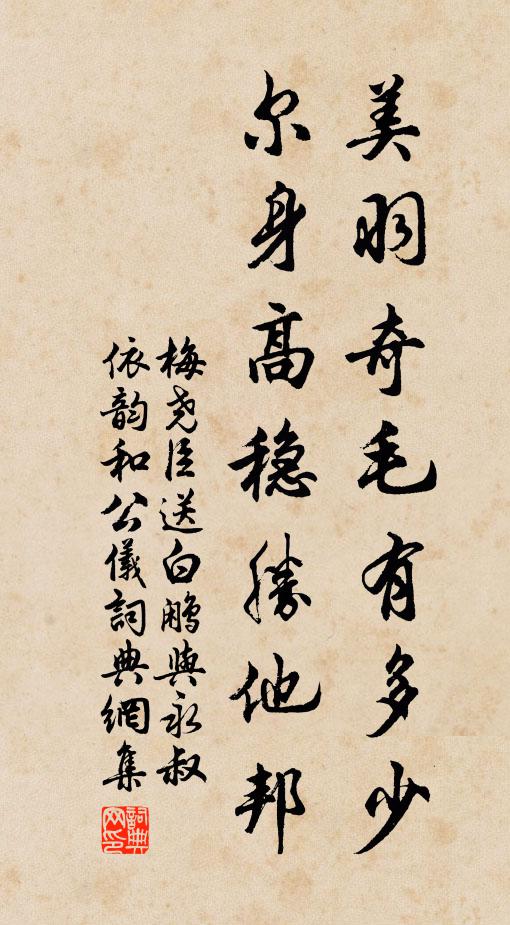 美羽奇毛有多少
尔身高稳勝他邦
梅尧臣送白鷴與永叔
依韵和公儀詞典網集
詞典
网印